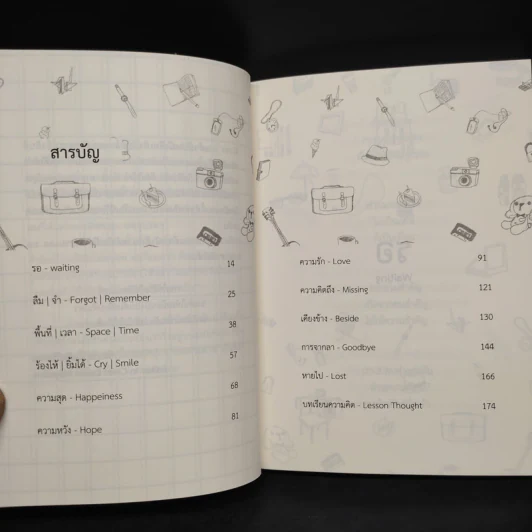 สารบัญ
รอ - waiting 14
ลืม | จำ - Forgot | Remember 25
พื้นที่ | เวลา - Space | Time 38
ร้องไห้ | ยิ้มได้ - Cry | Smile 57
ความสุด - Happeiness 68
ความหวัง - Hope 81
ความรัก - Love 91
ความคิดถึง - Missing 121
เคียงข้าง - Beside 130
การจากลา - Goodbye 144
หายไป - Lost 166
บทเรียนความคิด - Lesson Thought 174